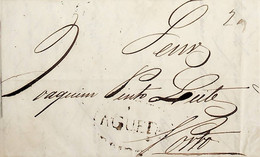 Joaquim Pinto Leite
AGUEDA
Porto